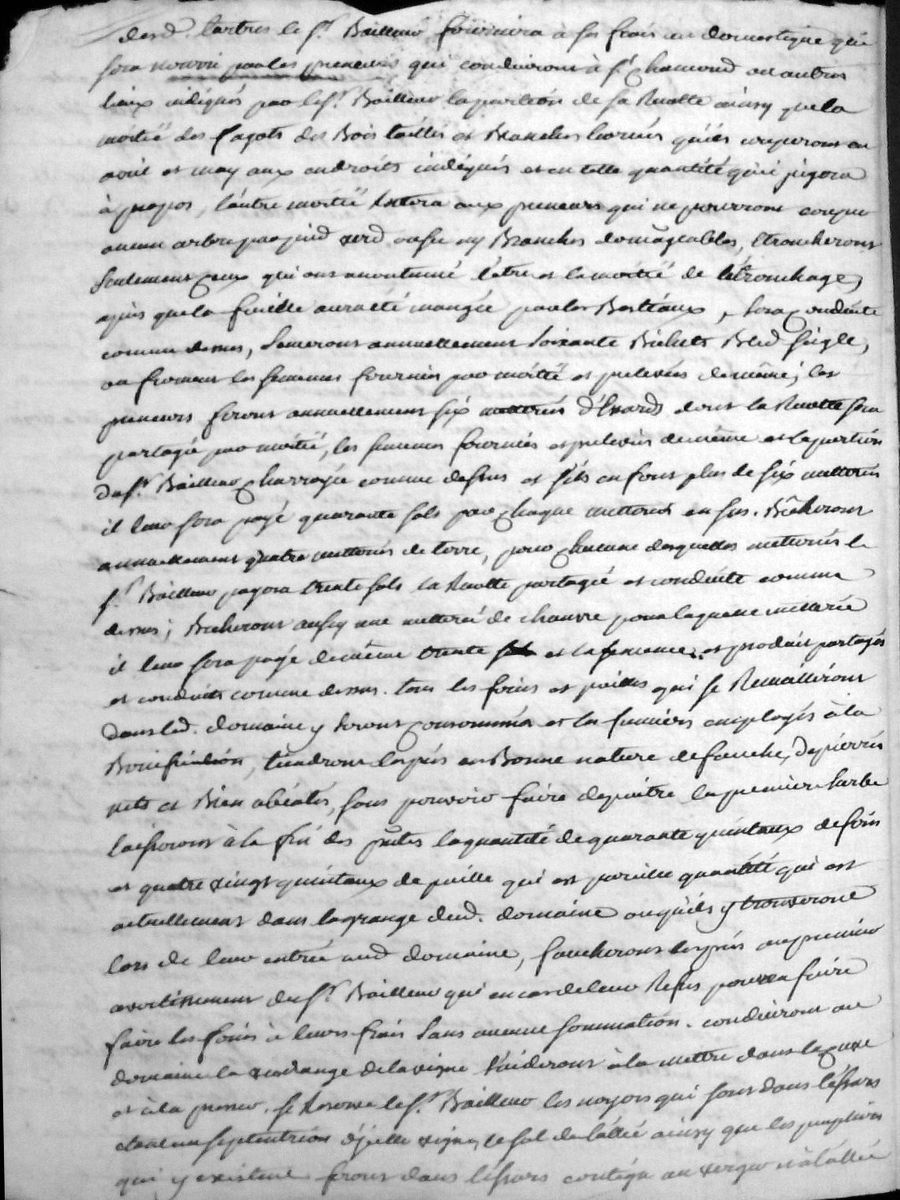 desd. tartres le Sr. Bailleur fournira à ses frais un domestique qui
sera nourri par les preneurs, qui conduiront à St. Chamond ou autres
lieux indiqués par le Sr. Bailleur la portion de sa Recolte ainsy que la
moitié des fagots des Bois taillés et Branches qu'ils couperont en
avril et may aux endroits indiqués et en telle quantité qu'il jugera
à propos, l'autre moitié restera aux preneurs qui ne pourront couper
aucun arbre par pied verd ou sec ny Branches domageables, étroncheront
seulement ceux qui ont accoutumé l'être et la moitié de l'étronchage,
après que la feuille aura été mangée par les Bestiaux, sera conduite
comme dessus, semeront annuellement soixante Bichets Bled seigle,
ou froment les semences fournies par moitié et prelevées de même; les
preneurs feront annuellement six metterées d'Essards dont la Recolte sera
partagée par moitié, les semences fournies et prelevées de même et la portion
du Sr. Bailleur charroyée comme dessus et s'ils en font plus de six metterées
il leur sera payé quarante sols par chaque metterée en sus. Bêcheront
annuellement quatre metterées de terre, pour chacune desquelles metterées le
Sr. Bailleur payera trente sols la Recolte partagée et conduite comme
dessus; Becheront aussy une metterée de chanvre pour laquelle metterée
il leur sera payé de même trente sols et la semence et produit partagés
et conduits comme dessus. tous les foins et pailles qui se Recuilliront
dans led. domaine y seront consommés et les fumiers employés à la
Bonification, tiendront les prés en Bonne nature de fauche, depierrés
nets et Bien abéalés, sans pouvoir faire depaitre la premiere herbe
laisseront à la fin des pntes la quantité de quarante quintaux de foin
et quatre vingt quintaux de paille qui est pareille quantité qui est
actuellement dans la grange dud. domaine ou qu'ils y trouveront
lors de leur entrée aud domaine, faucheront les prés au premier
avertissement du Sr. Bailleur qui en cas de leur Refus pourra faire
faire les foins à leurs frais sans aucune sommation. conduiront au
domaine la vendange de la vigne l'aideront à la mettre dans la cuve
et à la presser. se Reserve le Sr. Bailleur les noyers qui sont dans l'essars
étant en septentrion d'ycelle vigne, le sol de l'allée ainsy que les peupliers
qui y existent seront dans l'essars contigu au verger et à l'allée